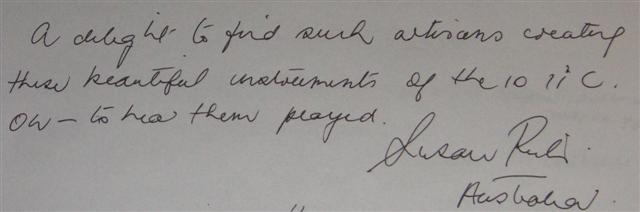 A delight to find such artisans creating
these beautiful instruments of the 10 11 C.
Oh – to hear them played.
Susan
Australia